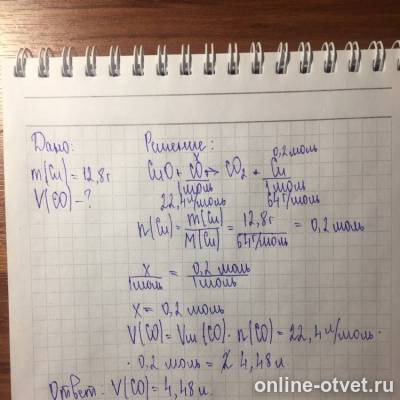 Дано: Решение:
m(Cu)=12,8г
V(CO)-?
x 0,2 моль
CuO + CO → CO₂ + Cu
1моль 1моль
22,4 л/моль 64 г/моль
n(Cu) = m(Cu)/M(Cu) = 12,8г/64г/моль = 0,2 моль
x/1моль = 0,2 моль/1моль
x = 0,2 моль
V(CO) = Vm(CO) · n(CO) = 22,4 л/моль ·
· 0,2 моль = 4,48 л
Ответ: V(CO) = 4,48 л.
online-otvet.ru